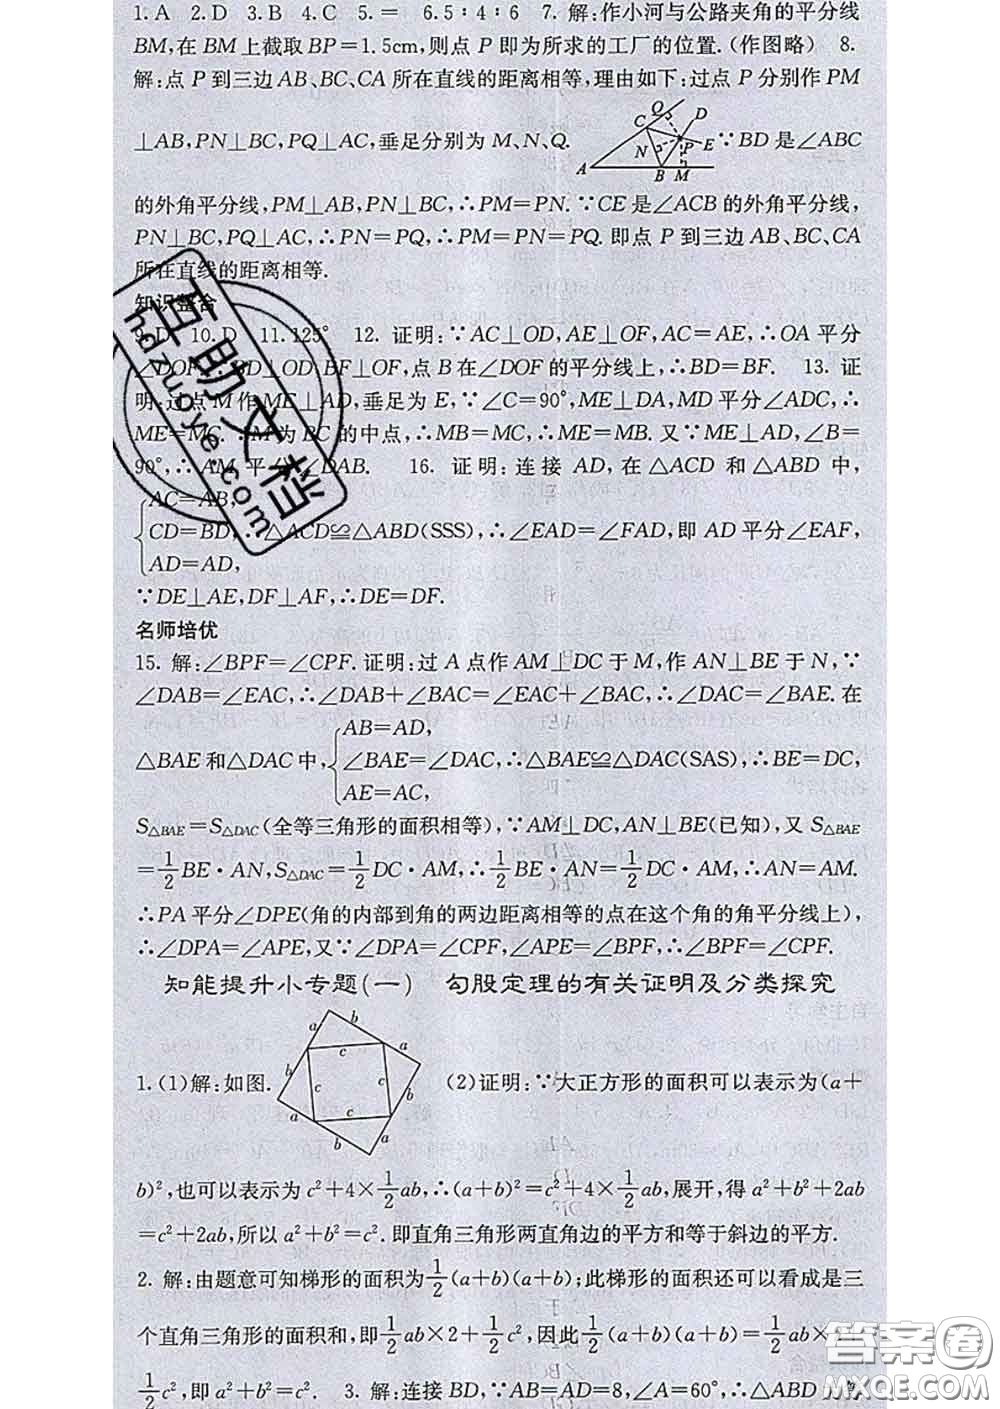 1. A　2. D　3. B　4. C　5. =　6. 5∶4∶6　7. 解:作小河与公路夹角的平分线
BM,在 BM 上截取 BP=1.5cm,则点 P 即为所求的工厂的位置.(作图略)　8.
解:点 P 到三边 AB、BC、CA 所在直线的距离相等,理由如下:过点 P 分别作 PM
⊥AB,PN⊥BC,PQ⊥AC,垂足分别为 M、N、Q. A B M C N Q P D E ∵BD 是∠ABC
的外角平分线,PM⊥AB,PN⊥BC,∴PM=PN. ∵CE 是∠ACB 的外角平分线,
PN⊥BC,PQ⊥AC,∴PN=PQ,∴PM=PN=PQ. 即点 P 到三边 AB、BC、CA
所在直线的距离相等.
知识整合
9. D　10. D　11. 125°　12. 证明:∵AC⊥OD,AE⊥OF,AC=AE,∴OA 平分
∠DOF. BD⊥OD,BF⊥OF,点 B 在∠DOF 的平分线上,∴BD=BF.　13. 证
明:过点 M 作 ME⊥AD,垂足为 E,∵∠C=90°,ME⊥DA,MD 平分∠ADC,∴
ME=MC. ∵M 为 BC 的中点,∴MB=MC,∴ME=MB. 又∵ME⊥AD,∠B=
90°,∴AM 平分∠DAB.　16. 证明:连接 AD,在△ACD 和△ABD 中,
AC=AB,
CD=BD,∴△ACD≌△ABD(SSS),∴∠EAD=∠FAD,即 AD 平分∠EAF,
AD=AD,
∵DE⊥AE,DF⊥AF,∴DE=DF.
名师培优
15. 解:∠BPF=∠CPF. 证明:过 A 点作 AM⊥DC 于 M,作 AN⊥BE 于 N,∵
∠DAB=∠EAC,∴∠DAB+∠BAC=∠EAC+∠BAC,∴∠DAC=∠BAE. 在
AB=AD,
△BAE 和△DAC 中,∠BAE=∠DAC,∴△BAE≌△DAC(SAS),∴BE=DC,
AE=AC,
S△BAE=S△DAC(全等三角形的面积相等),∵AM⊥DC,AN⊥BE(已知),又 S△BAE
=1/2BE·AN,S△DAC=1/2DC·AM,∴1/2BE·AN=1/2DC·AM,∴AN=AM.
∴PA 平分∠DPE(角的内部到角的两边距离相等的点在这个角的角平分线上),
∴∠DPA=∠APE,又∵∠DPA=∠CPF,∠APE=∠BPF,∴∠BPF=∠CPF.
知能提升小专题(一)　勾股定理的有关证明及分类探究
1. (1)解:如图. a b c a c c b a c b b a (2)证明:∵大正方形的面积可以表示为(a+
b)²,也可以表示为 c²+4×1/2ab,∴(a+b)²=c²+4×1/2ab,展开,得 a²+b²+2ab
=c²+2ab,所以 a²+b²=c². 即直角三角形两直角边的平方和等于斜边的平方.
2. 解:由题意可知梯形的面积为1/2(a+b)(a+b);此梯形的面积还可以看成是三
个直角三角形的面积和,即1/2ab×2+1/2c²,因此1/2(a+b)(a+b)=1/2ab×2+
1/2c²,即 a²+b²=c².　3. 解:连接 BD,∵AB=AD=8,∠A=60°,∴△ABD
互助文档
hdzuoye.com
答案圈
MXQE.COM